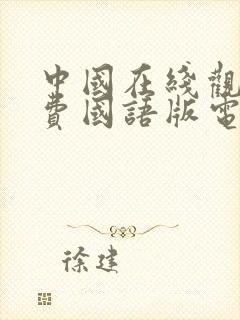 中國在綫觀
費國語版電
徐建